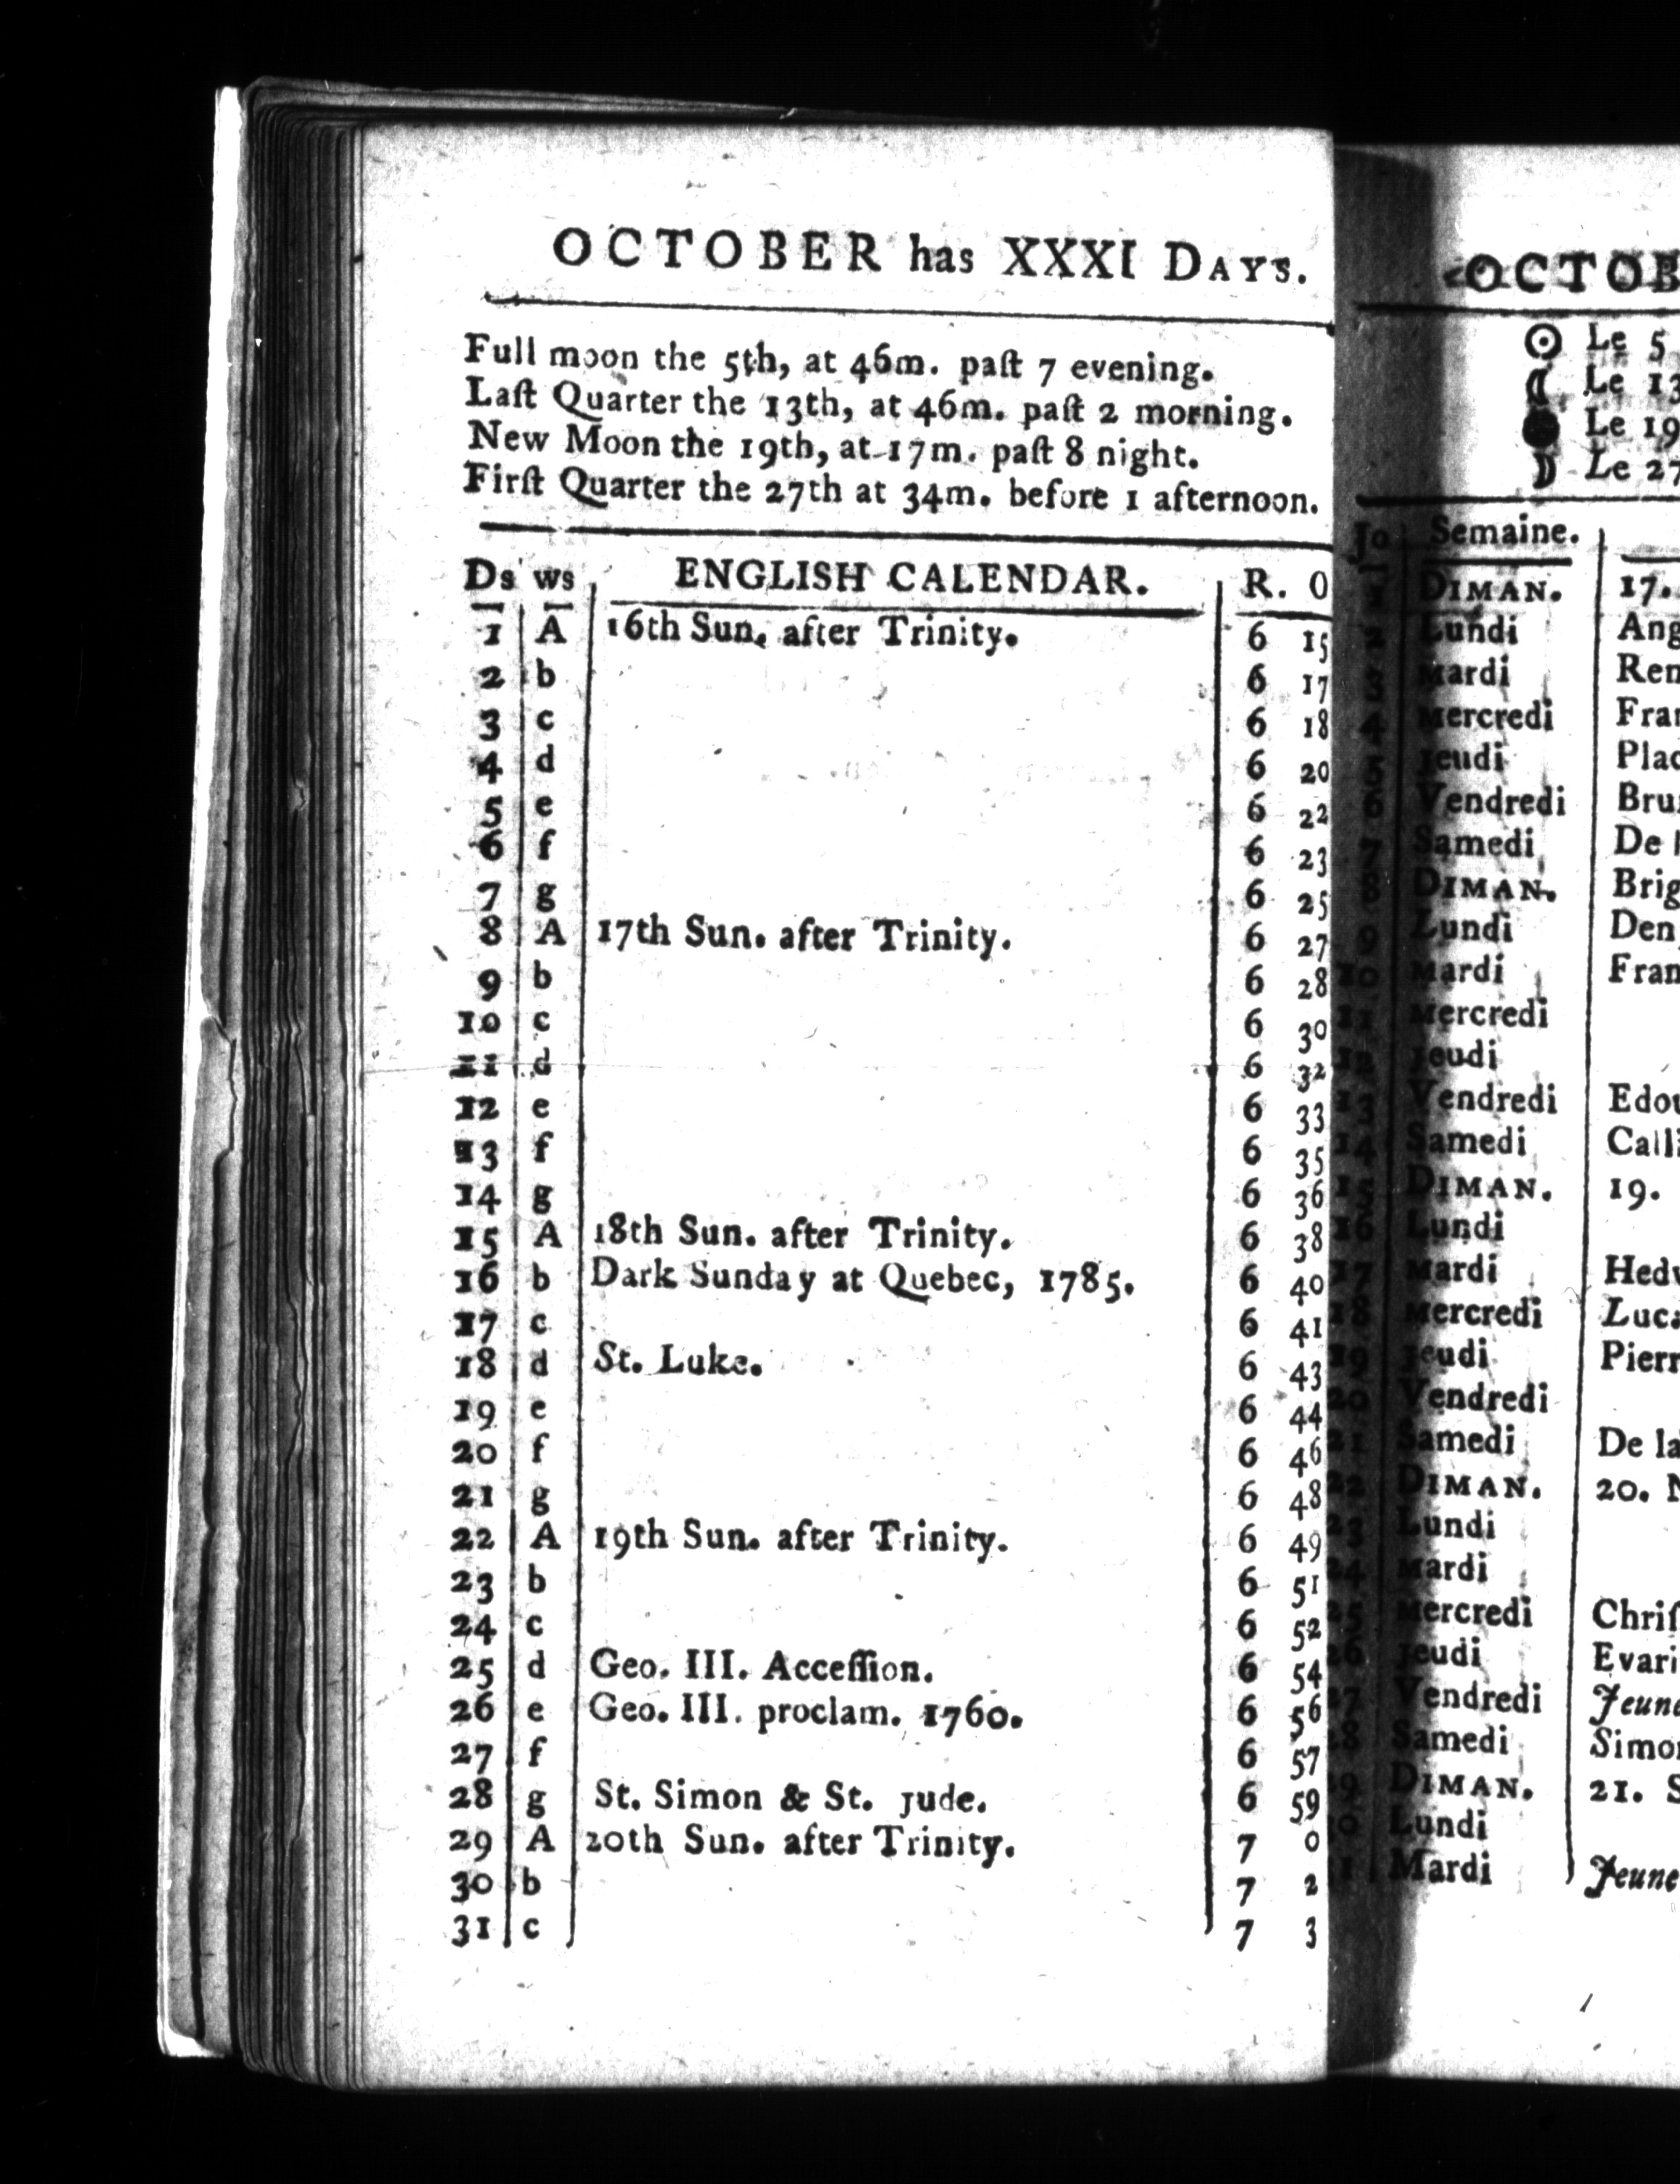 OCTOBER has XXXI DAYS.
Full moon the 5th, at 46m. paſt 7 evening.
Laſt Quarter the 13th, at 46m. paſt 2 morning.
New Moon the 19th, at 17m. paſt 8 night.
Firſt Quarter the 27th at 34m. before 1 afternoon.
Ds ws ENGLISH CALENDAR. R. O
1 A 16th Sun. after Trinity. 6 15
2 b 6 17
3 c 6 18
4 d 6 20
5 e 6 22
6 f 6 23
7 g 6 25
8 A 17th Sun. after Trinity. 6 27
9 b 6 28
10 c 6 30
11 d 6 32
12 e 6 33
13 f 6 35
14 g 6 36
15 A 18th Sun. after Trinity. 6 38
16 b Dark Sunday at Quebec, 1785. 6 40
17 c 6 41
18 d St. Luke. 6 43
19 e 6 44
20 f 6 46
21 g 6 48
22 A 19th Sun. after Trinity. 6 49
23 b 6 51
24 c 6 52
25 d Geo. III. Acceſſion. 6 54
26 e Geo. III. proclam. 1760. 6 56
27 f 6 57
28 g St. Simon & St. Jude. 6 59
29 A 20th Sun. after Trinity. 7 0
30 b 7 2
31 c 7 3
OCTOB
Le 5
Le 13
Le 19
Le 27
Jo Semaine.
1 DIMAN. 17.
2 Lundi Ang
3 Mardi Ren
4 Mercredi Fran
5 Jeudi Plac
6 Vendredi Bru
7 Samedi De
8 DIMAN. Brig
9 Lundi Den
10 Mardi Fran
11 Mercredi
12 Jeudi
13 Vendredi Edou
14 Samedi Calli
15 DIMAN. 19.
16 Lundi
17 Mardi Hedw
18 Mercredi Luca
19 Jeudi Pierr
20 Vendredi
21 Samedi De la
22 DIMAN. 20. N
23 Lundi
24 Mardi
25 Mercredi Chriſ
26 Jeudi Evari
27 Vendredi Jeune
28 Samedi Simon
29 DIMAN. 21. S
30 Lundi
31 Mardi Jeune